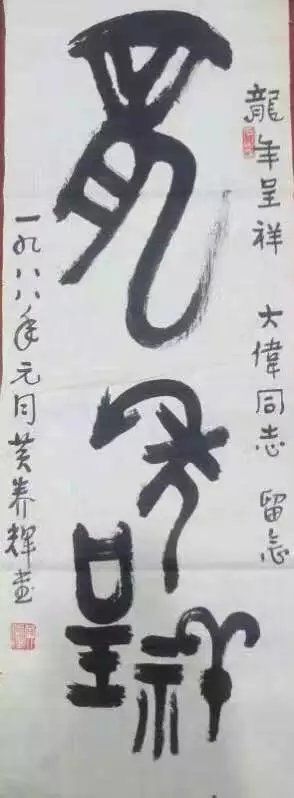 龍年呈祥 大偉同志 留念
龍年呈祥
一九八八年元月黄养輝